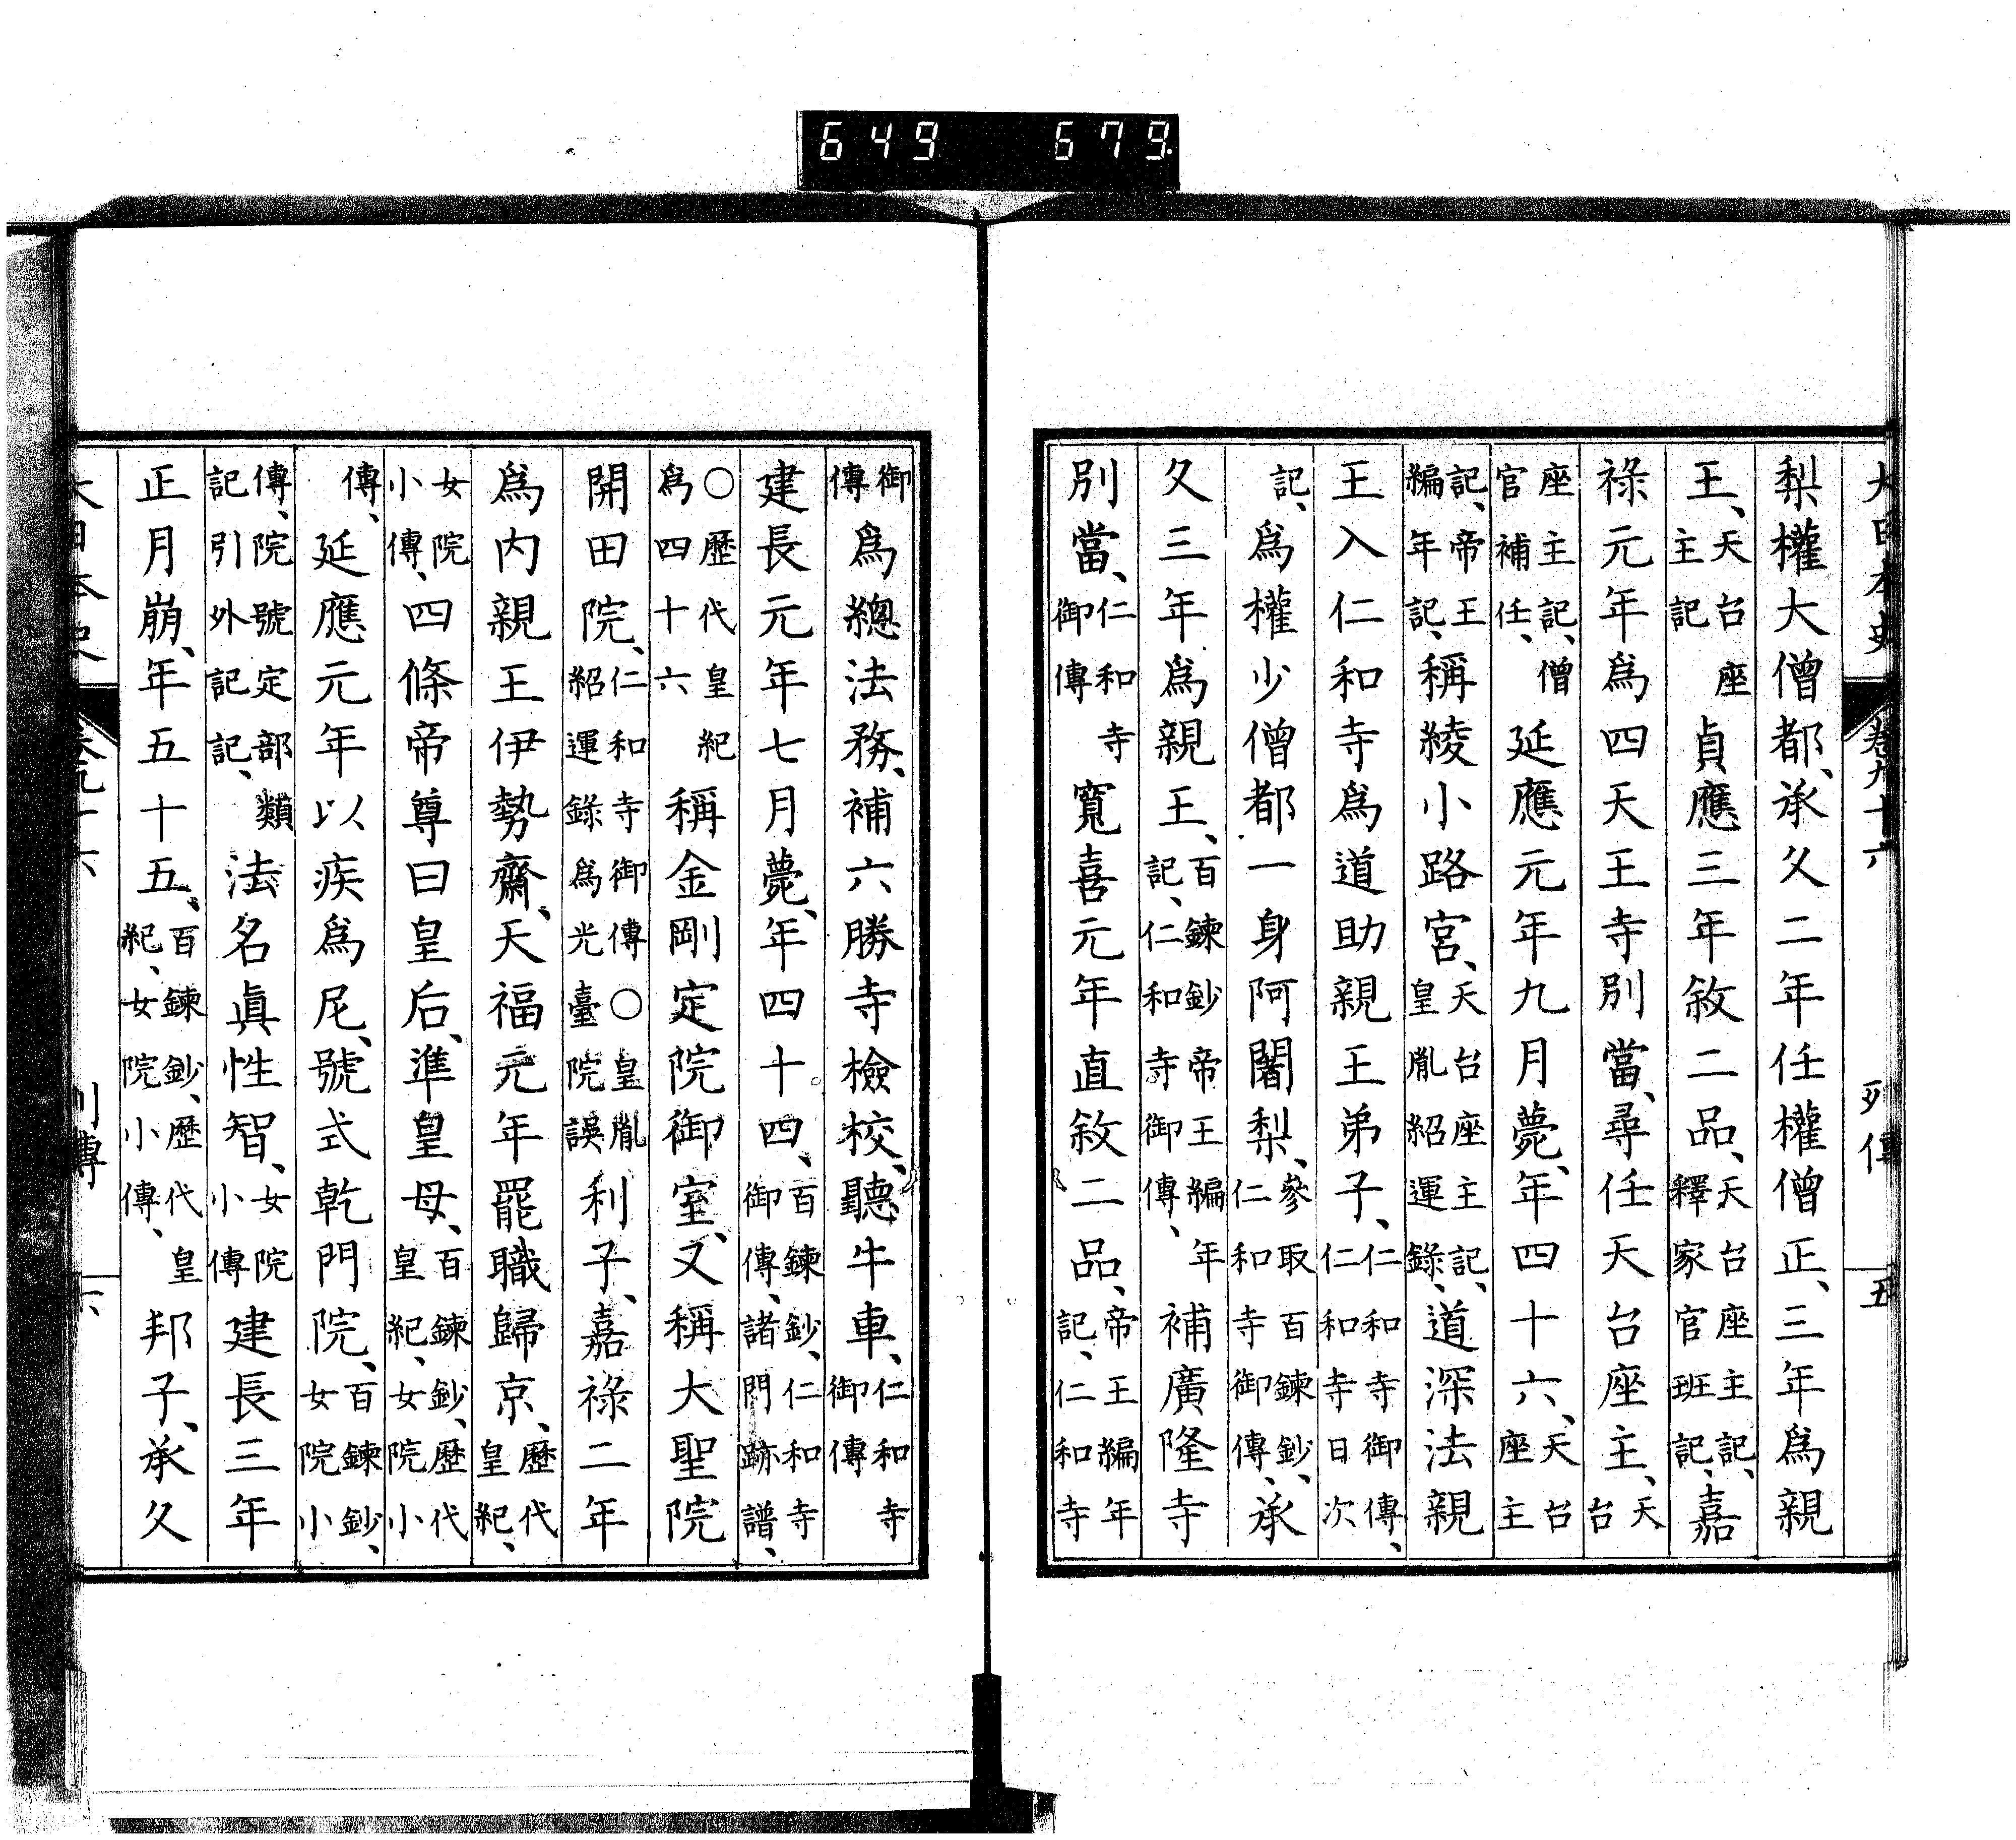 大日本史 卷九十六 列傳 五
梨權大僧都、承久二年任權僧正、三年爲親
王、天台座主記貞應三年敘二品、天台座主記、釋家官班記、嘉
祿元年爲四天王寺別當、尋任天台座主、天台
座主記、僧官補任、延應元年九月薨、年四十六、天台座主
記、帝王編年記、稱綾小路宮、天台座主記、皇胤紹運錄、道深法親
王入仁和寺爲道助親王弟子、仁和寺御傳、仁和寺日次
記、爲權少僧都一身阿闍梨、參取百鍊鈔、仁和寺御傳、承
久三年爲親王、百鍊鈔帝王編年記、仁和寺御傳、補廣隆寺
別當、仁和寺御傳寬喜元年直敘二品、帝王編年記、仁和寺
御傳爲總法務、補六勝寺檢校、聽牛車、仁和寺御傳
建長元年七月薨、年四十四、百鍊鈔、仁和寺御傳、諸門跡譜、
○歷代皇紀爲四十六稱金剛定院御室、又稱大聖院
開田院、仁和寺御傳○皇胤紹運錄爲光臺院誤利子、嘉祿二年
爲內親王伊勢齋、天福元年罷職歸京、歷代皇紀、
女院小傳、四條帝尊曰皇后、準皇母、百鍊鈔、歷代皇紀、女院小
傳、延應元年以疾爲尼、號式乾門院、百鍊鈔、女院小
傳、院號定部類記引外記記、法名眞性智、女院小傳建長三年
正月崩、年五十五、百鍊鈔、歷代皇紀、女院小傳、邦子、承久
大日本史 卷九十六 列傳 六
649 679.